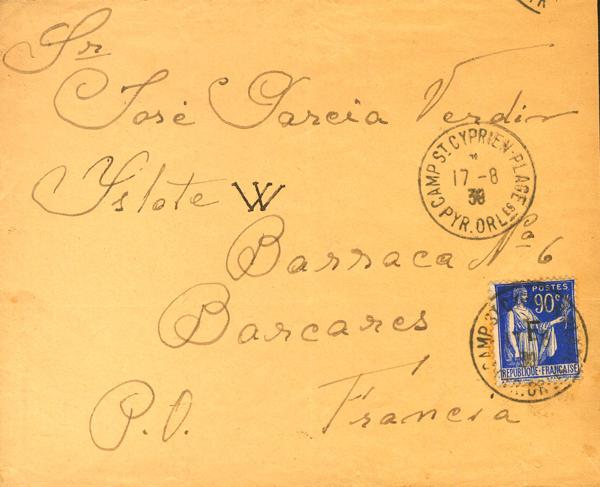 Sr
José Garcia Verdin
Yslote W
Barraca Nº 6
Barcares
P.O. Francia
CAMP ST CYPRIEN-PLAGE
17-8
PYR. ORLES
POSTES
90c
REPUBLIQUE-FRANÇAISE
CAMP ST